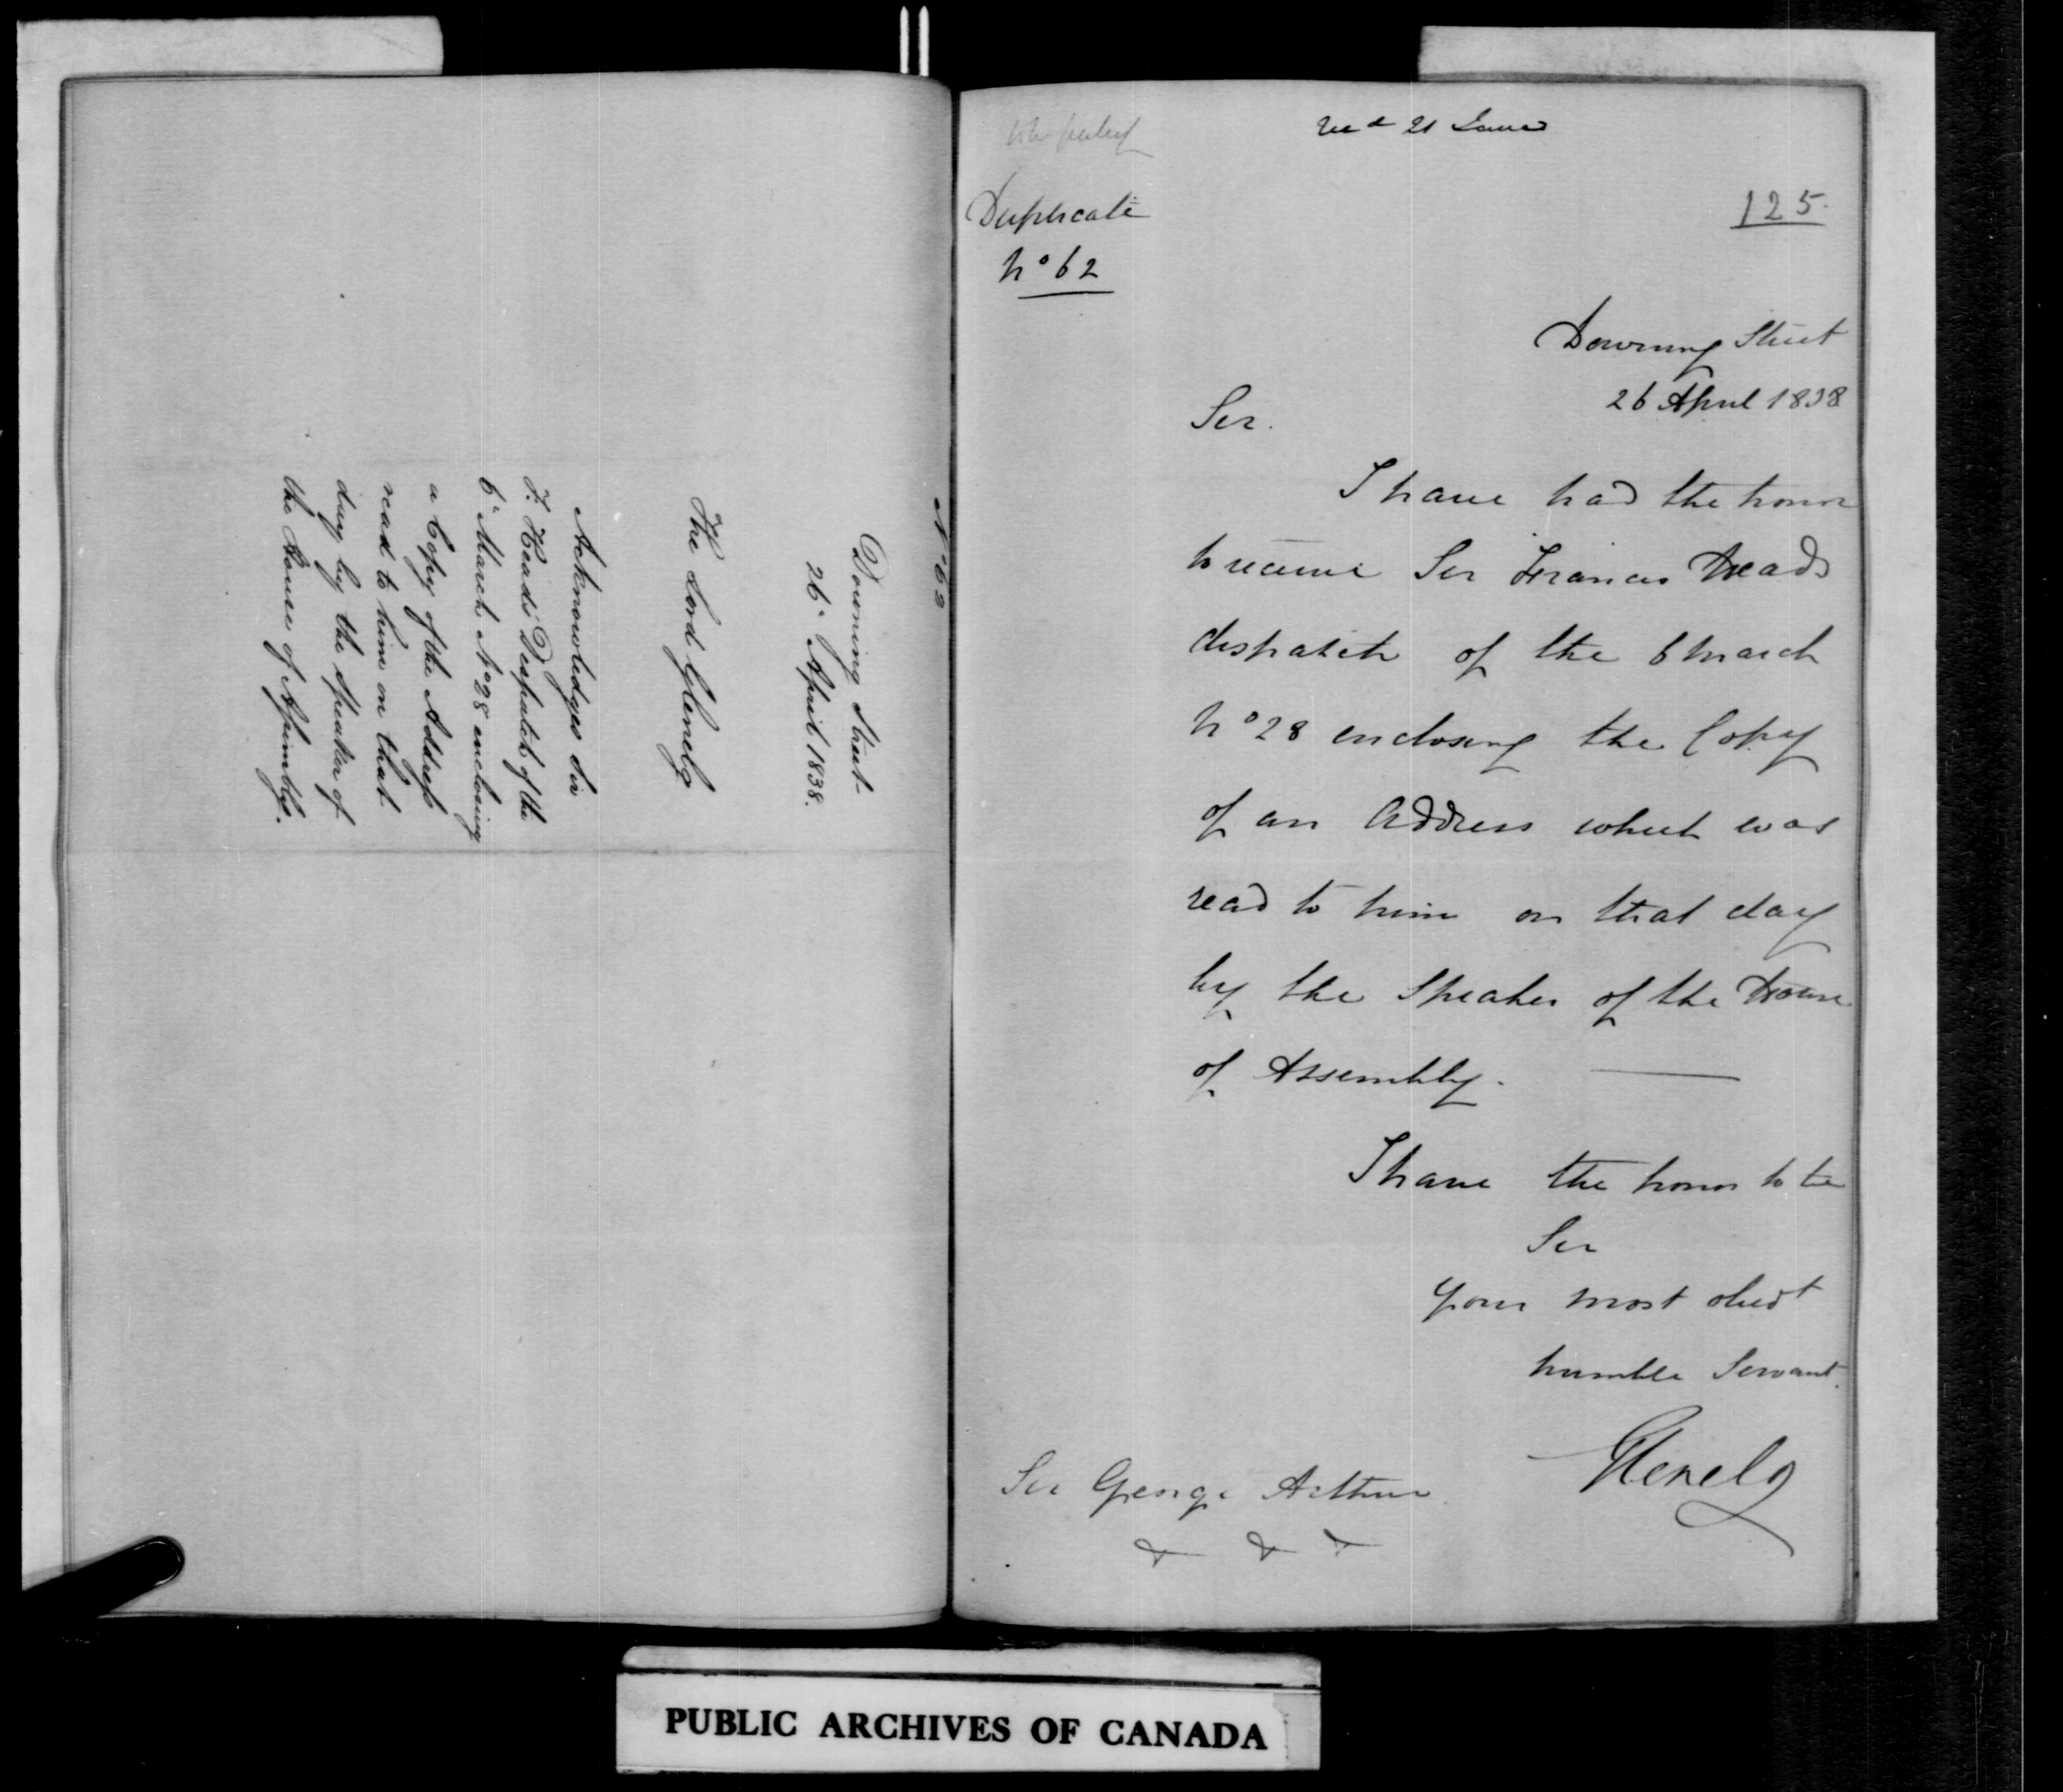 No 62
Downing Street
26th April 1838.
The Lord Glenelg
Acknowledges Sir
F. Head's Despatch of the
6th March No 28 enclosing
a Copy of the Address
read to him on that
day by the Speaker of
the House of Assembly.
Recd 21 June
Duplicate
No 62
125.
Downing Street
26 April 1838
Sir.
I have had the honor
to receive Sir Francis Heads
dispatch of the 6 March
No 28 enclosing the Copy
of an Address which was
read to him on that day
by the Speaker of the House
of Assembly.
I have the honor to be
Sir
Your most obedt
humble Servant.
Glenelg
Sir George Arthur
& & &
PUBLIC ARCHIVES OF CANADA